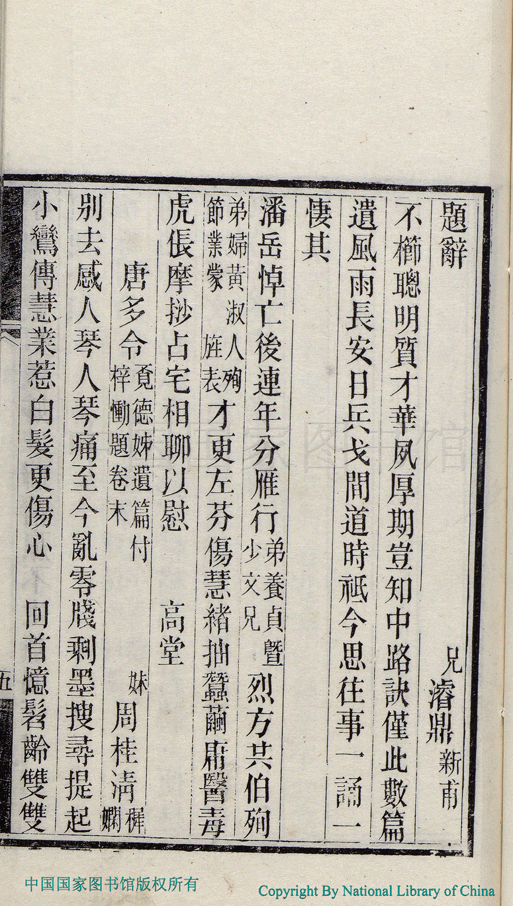 題辭 兄濬鼎新甫
不櫛聰明質才華夙厚期豈知中路訣僅此數篇
遺風雨長安日兵戈間道時祗今思往事一誦一
悽其
潘岳悼亡後連年分雁行弟養貞暨少文兄烈方共伯殉
弟婦黃淑人殉節業蒙旌表才更左芬傷慧緒抽蠶繭庸醫毒
虎倀摩挱占宅相聊以慰 高堂
唐多令覔德姊遺篇付梓慟題卷末 妹周桂清樨嫻
別去感人琴人琴痛至今亂零牋剩墨搜尋提起
小鸞傳慧業惹白髮更傷心 回首憶髫齡雙雙
五
中国国家图书馆版权所有
Copyright By National Library of China